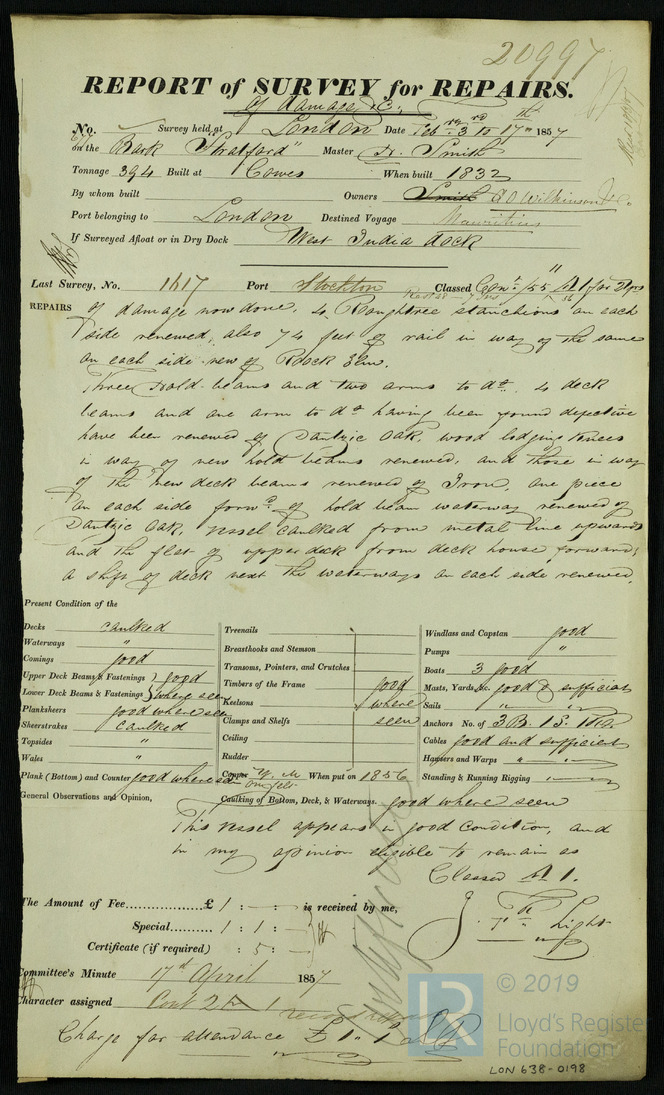 20997
REPORT of SURVEY for REPAIRS.
of damage &c.
No. Survey held at London Date Feb ry 3 rd to 17 th 1857
on the Bark "Stratford" Master Smith
Tonnage 394 Built at Cowes When built 1832
By whom built Owners Smith Wilkinson
Port belonging to London Destined Voyage Mauritius
If Surveyed Afloat or in Dry Dock West India dock
Last Survey, No. 1417 Port Stockton Classed Cont. /55 A1 for
REPAIRS of damage now done, 4 Roughtree stanchions on each
side renewed, also 74 feet of rail in way of the same
on each side new of Rock Elm.
Three Hold beams and two arms to do. 4 deck
beams and one arm to do having been found defective
have been renewed of Dantzic Oak, wood lodging knees
in way of new hold beams renewed, and those in way
of the new deck beams renewed of Iron, one piece
on each side forwd. of hold beam waterway renewed of
Dantzic Oak, vessel caulked from metal line upwards
and the flat of upper deck from deck house forward;
a shift of deck next the waterways on each side renewed.
Present Condition of the
Decks caulked
Waterways "
Comings good
Upper Deck Beams & Fastenings } good
Lower Deck Beams & Fastenings } where seen
Planksheers good where seen
Sheerstrakes caulked
Topsides "
Wales "
Plank (Bottom) and Counter good where seen
Treenails
Breasthooks and Stemson
Transoms, Pointers, and Crutches
Timbers of the Frame good
Keelsons where
Clamps and Shelfs seen
Ceiling
Rudder
Copper Y. M on felt When put on 1856
Caulking of Bottom, Deck, & Waterways. good where seen
Windlass and Capstan good
Pumps "
Boats 3 good
Masts, Yards, &c. good & sufficient
Sails " "
Anchors No. of 3B 1S.
Cables good and sufficient
Hawsers and Warps "
Standing & Running Rigging "
General Observations and Opinion,
This vessel appears in good condition, and
in my opinion eligible to remain as
Classed A 1.
The Amount of Fee £ 1 : - : - is received by me,
Special 1 : 1 : -
Certificate (if required) : 5 : -
Light
Committee's Minute 17th April 1857
Character assigned Cont 2 A 1
Charge for attendance £1. 1
© 2019
LR
Lloyd's Register
Foundation
LON 638-0198